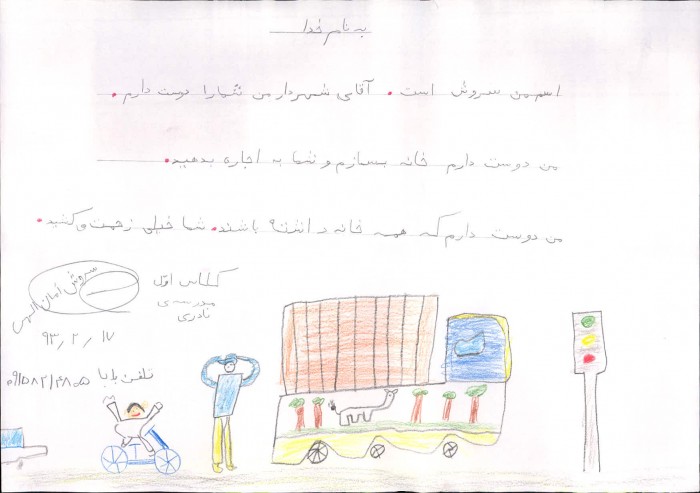 به نام خدا
اسم من سروش است. آقای شهردار من شما را دوست دارم.
من دوست دارم خانه بسازم و شما به اجاره بدهید.
من دوست دارم که همه خانه داشته باشند. شما خیلی زحمت می کشید.
کلاس اوّل
مدرسه ی
نادری
سروش امان الهی
۹۳٫۲٫۱۷
تلفن بابا